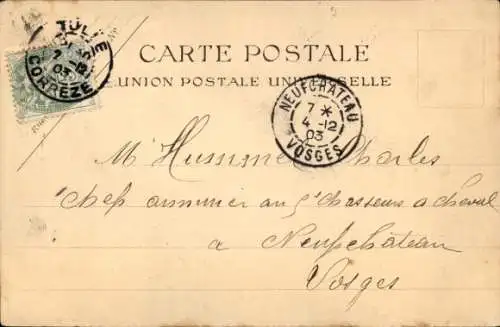 TULLE
CORRÈZE
CARTE POSTALE
UNION POSTALE UNIVERSELLE
NEUFCHÂTEAU
7 *
4 -12
03
VOSGES
Mr Hummel Charles
chef armurier au chasseurs a cheval
a Neufchâteau
Vosges